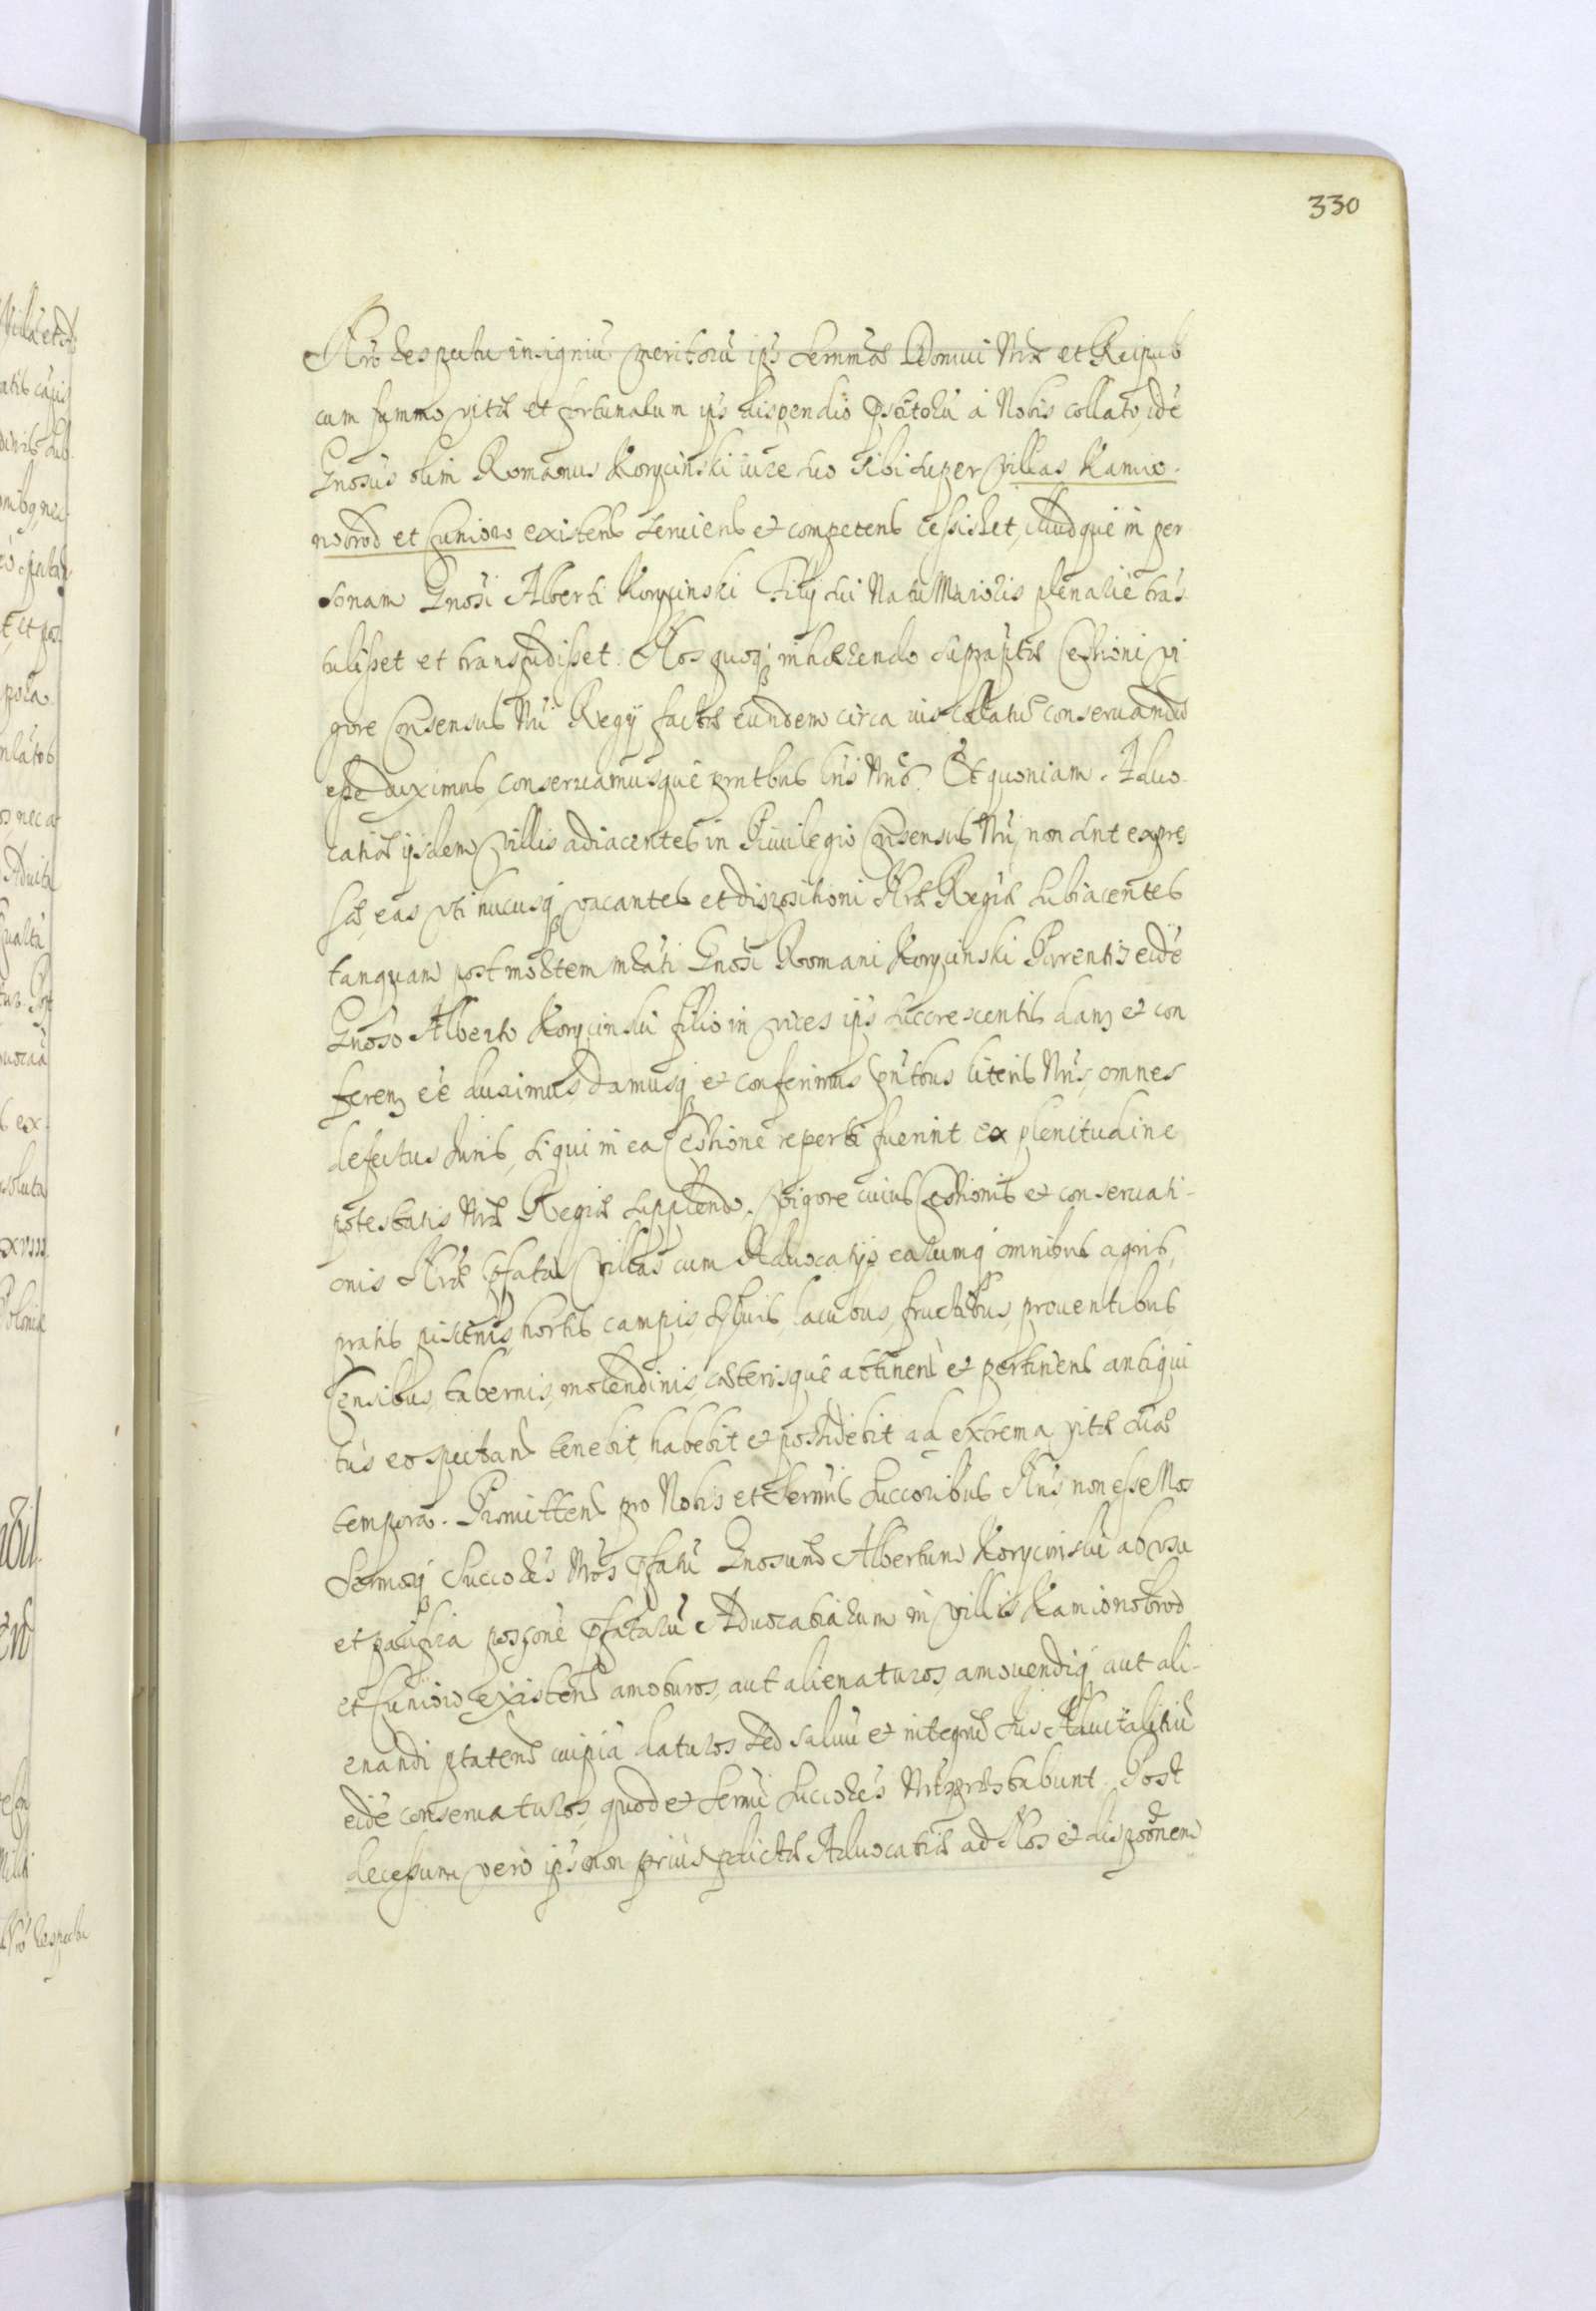 330
Nrõ respectu insigniũ meritorũ ips Sermæ Domui Nræ et Reipub
cum summo vitæ et fortunarum ips dispendio pstitorũ à Nobis collato, idẽ
Gnosus olim Romanus Korycinski iure suo sibi super villas Kamio-
nobrod et Cuniow existenś serviens et competens cessisset, illudque in per
sonam Gnosi Alberti Korycinski Filij sui Natu Maioris plenarie trãs
tulisset et transfudisset. Nos quoq; inhærendo suprascriptæ Cessioni vi
gore Consensus Nri Regij factæ eundem circa ius collatũ conservandũ
esse duximus, conservamusque pntbus lris Nris. Et quoniam Advo-
catiæ ijsdem villis adiacentes in Privilegio Consensus Nri non sint expres
sæ, eas uti hucusq vacantes et dispositioni Nræ Regiæ subiacentes
tanquam post mortem mlati Gnosi Romani Korycinski Parentis eidẽ
Gnoso Alberto Korycinski filio in vices ips succrescentis dand et con
ferend eẽ duximus, damusq et conferimus pntbus literis Nris, omnes
defectus Iuris, si qui in ea Cessione reperti fuerint ex plenitudine
potestatis Nræ Regiæ supplendo. Vigore cuius Cessionis et conservati-
onis Nræ pfatas Villas cum Advocatijs earumq omnibus agris,
pratis piscinis, hortis campis, sylvis, lacubus, fructibus, proventibus
Censibus, tabernis, molendinis, cæterisque attinenś et pertinenś antiqui
tùs eo spectanś tenebit, habebit et possidebit ad extrema vitæ suæ
tempora. Promittenś pro Nobis et Sermis Succoribus Nris, non esse Nos
Sermosq Succores Nros pfatũ Gnosum Albertum Korycinski ab usu
et pacifica possone pfatarũ Advocatiarum in villis Kamionobrod
et Cuniow existenś amoturos, aut alienaturos, amovendiq aut ali-
enandi ptatem cuipiã daturos sed salvũ et integrũ Ius Advitalitiũ
eidẽ conservaturos, quod et Sermi Succores Nri præstabunt. Post
decessum vero ips non prius pdictæ Advocatiæ ad Nos et dispoonem